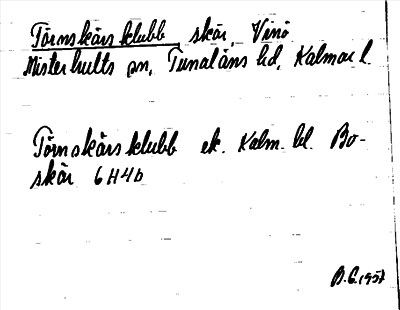 Törnskärs klubb, skär, Vinö
Misterhults sn, Tunaläns hd, Kalmar l.
Törnskärs klubb ek. Kalm. bl. Bo-
skär 6H4b
B.G. 1957